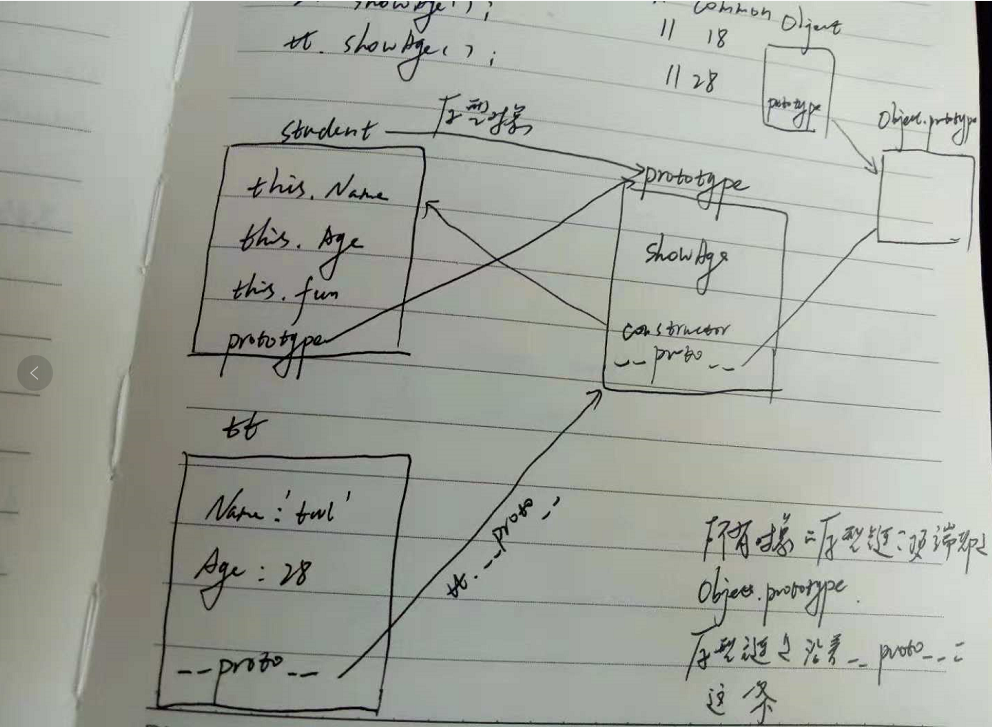 showAge();
tt. showAge();
// common
// 18
// 28
Object
prototype
Object.prototype
student
原型对象
this.Name
this.Age
this.fun
prototype
prototype
showAge
constructor
__proto__
tt
Name:'twl'
Age:28
__proto__
tt.__proto__
所有对象的原型链的顶端都是
Object.prototype.
原型链是沿着__proto__的
这条